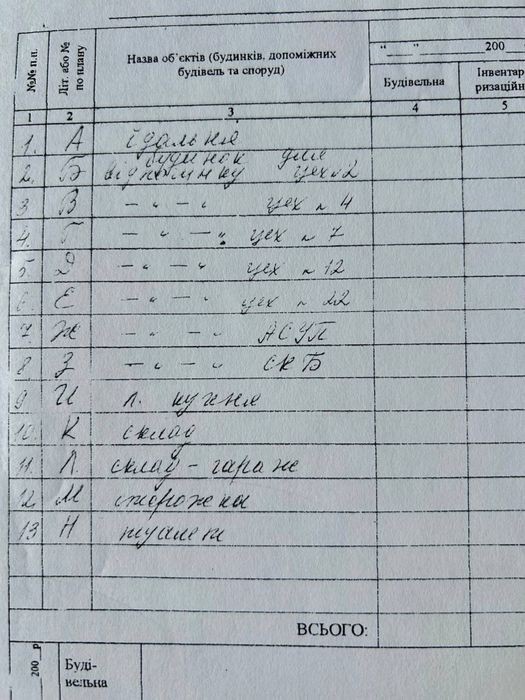 №№ п.п.
Літ. або № по плану
Назва об'єктів (будинків, допоміжних
будівель та споруд)
"____" ________ 200__
Будівельна
Інвентар
ризаційн
1 2 3 4 5
1. А їдальня
2. Б будинок для
відпочинку цех №2
3 В — " — " цех № 4
4. Г — " — " цех № 7
5. Д — " — " цех № 12
6. Е — " — " цех № 22
7. Ж — " — " АСУП
8 З — " — " СКБ
9 И л. кухня
10. К склад
11. Л склад - гараж
12. М сторожка
13 Н туалет
ВСЬОГО:
200__р
Буді-
вельна